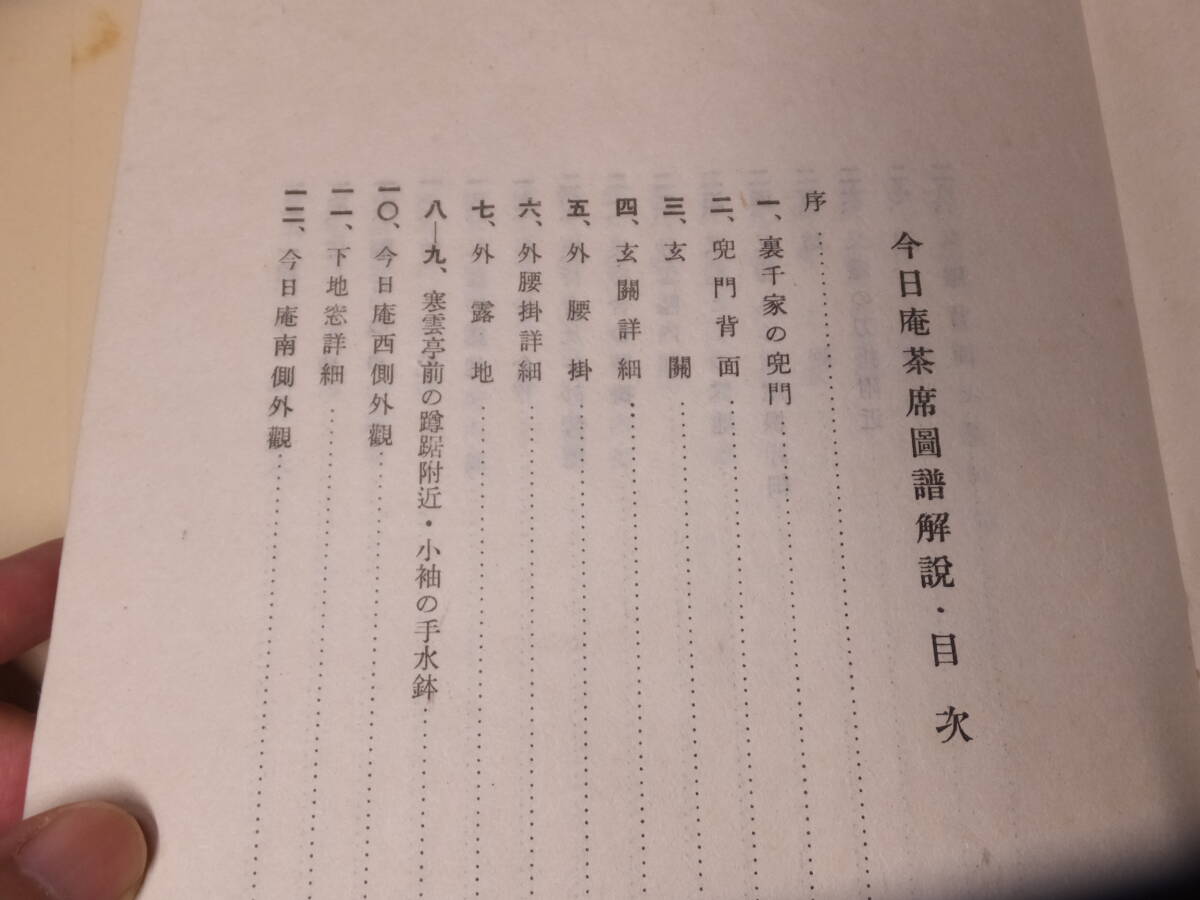 今日庵茶席圖譜解說・目次
序
一、裏千家の兜門
二、兜門背面
三、玄關
四、玄關詳細
五、外腰掛
六、外腰掛詳細
七、外露地
八—九、寒雲亭前の蹲踞附近・小袖の手水鉢
一〇、今日庵西側外觀
一一、下地窓詳細
一二、今日庵南側外觀